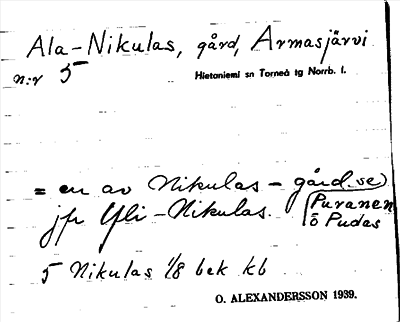 Ala-Nikulas, gård, Armasjärvi
n:r 5
Hietaniemi sn Torneå tg Norrb. l.
= en av Nikulas-gård. se
jfr Yli-Nikulas. Puranen
o Pudas
5 Nikulas 1/8 bek kb
O. ALEXANDERSSON 1939.